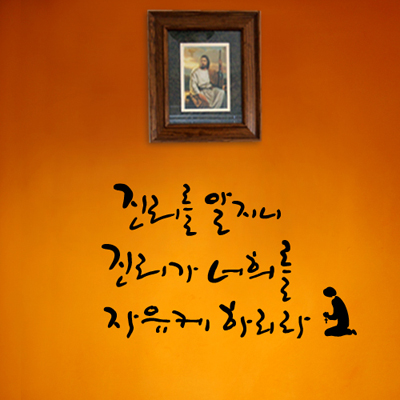 진리를 알지니
진리가 너희를
자유케 하리라